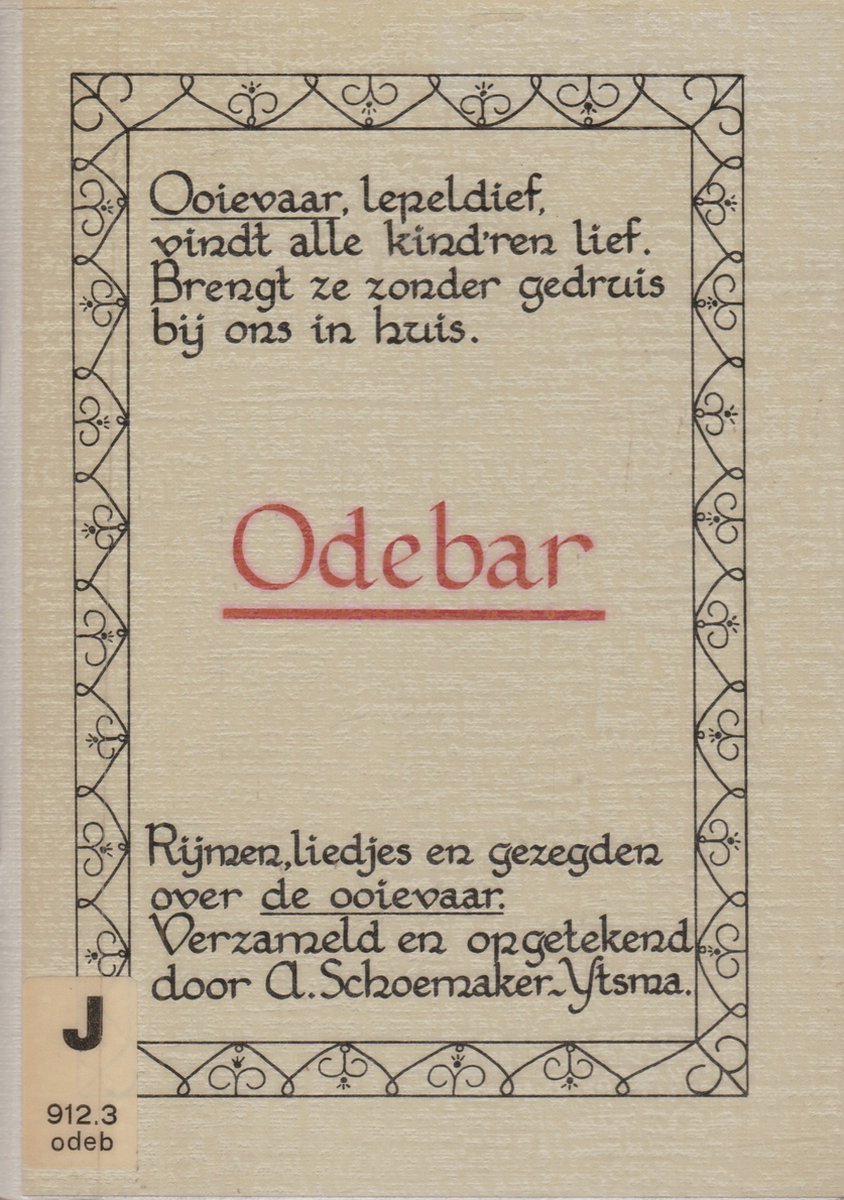 Ooievaar, lepeldief,
vindt alle kind'ren lief.
Brengt ze zonder gedruis
bij ons in huis.
Odebar
Rijmen, liedjes en gezegden
over de ooievaar.
Verzameld en opgetekend
door A. Schoemaker-Ytsma.
J
912.3
odeb